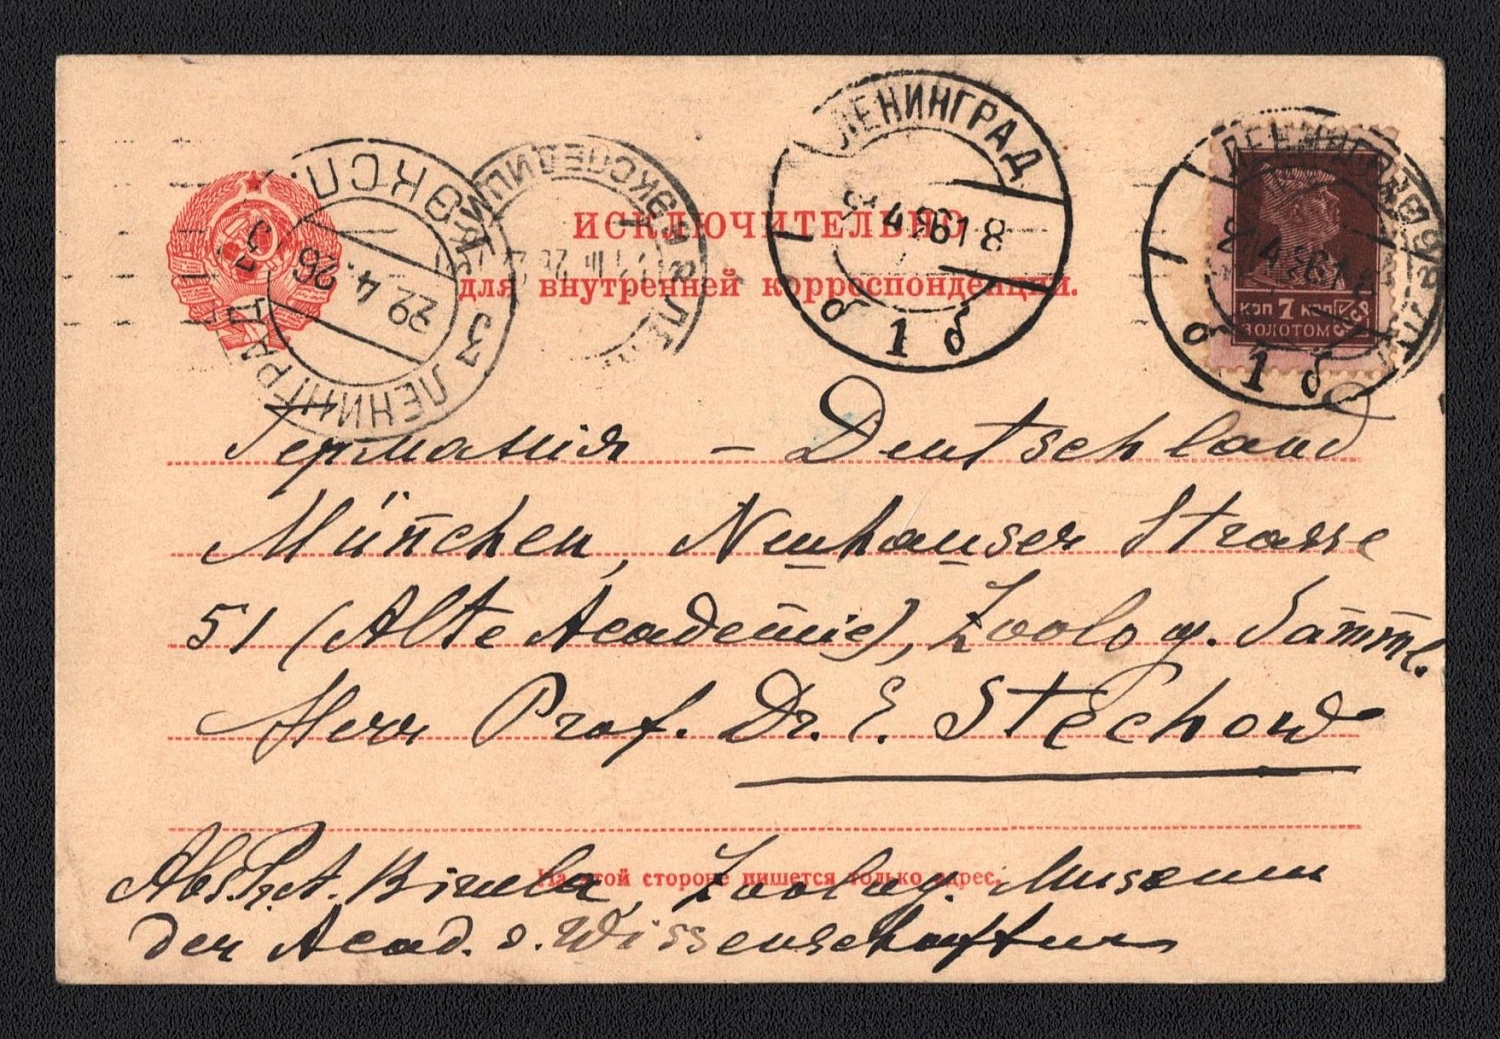 ЛЕНИНГРАД
8 1 б
ЛЕНИНГРАД
ЭКСП.
29 4 26
3
ЭКСПЕДИЦИЯ
ИСКЛЮЧИТЕЛЬНО
для внутренней корреспонденции.
КОП 7 КОП
ЗОЛОТОМ СССР
Германія – Deutschland
München, Neuhauser Strasse
51 (Alte Academie), Zoolog. Samml.
Herr Prof. Dr. E. Stechow
На этой стороне пишется только адрес.
Zoolog. Museum
der Acad. d. Wissenschaften